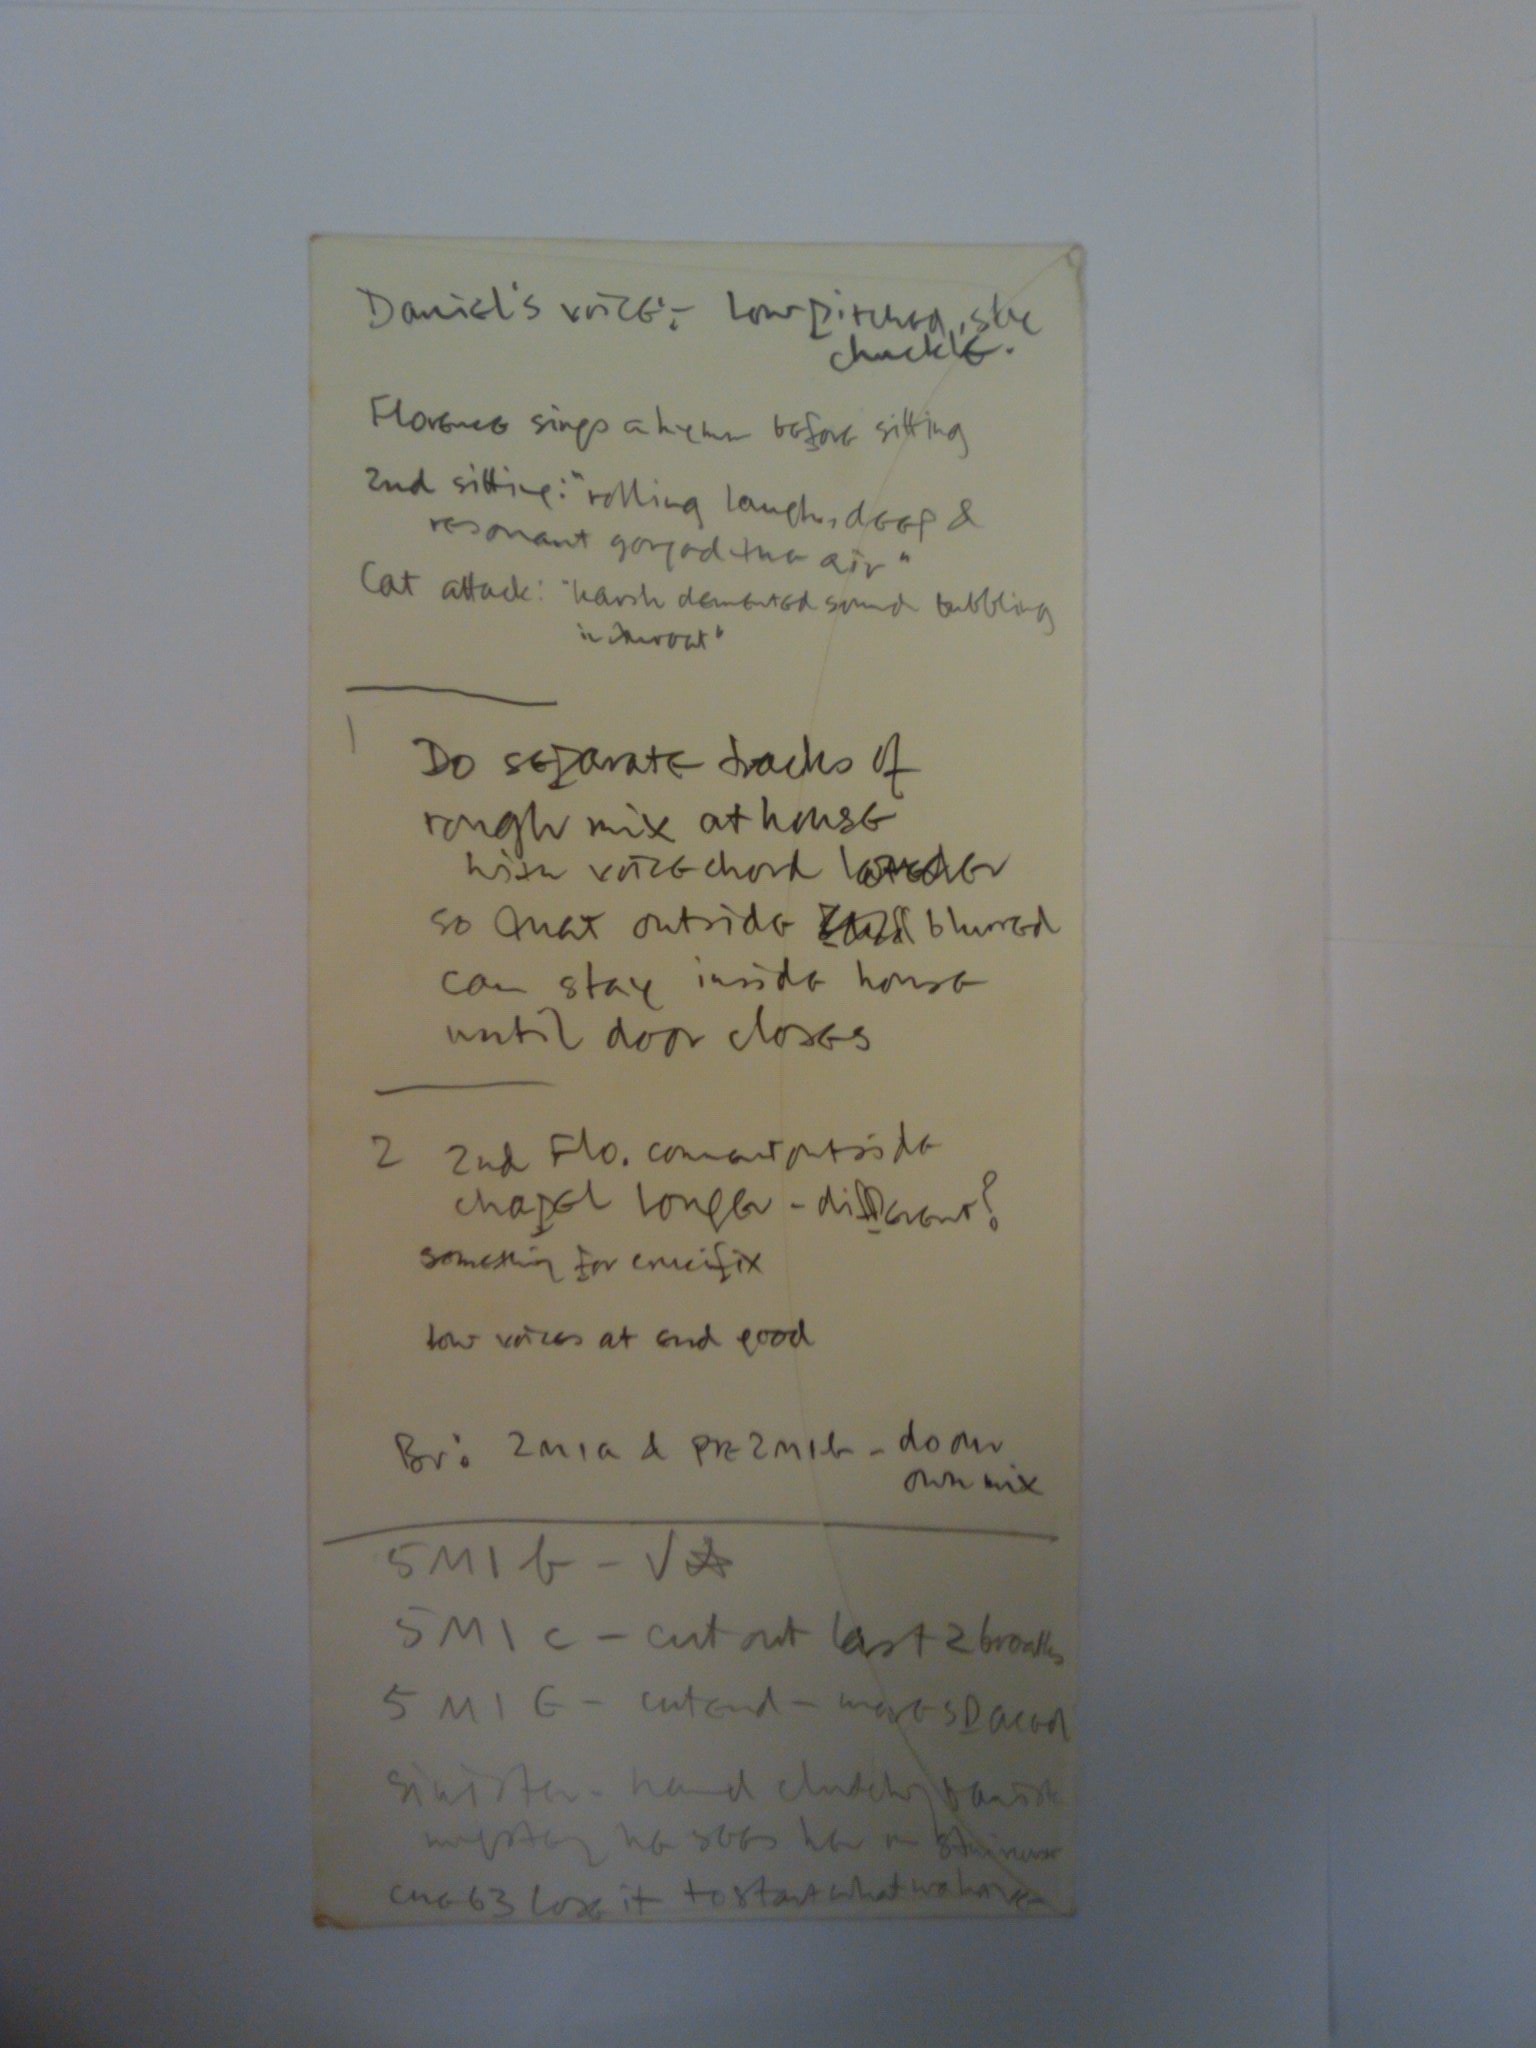 Daniel's voice:- low pitched, sly
chuckle.
Florence sings a hymn before sitting
2nd sitting: "rolling laugh, deep &
resonant gorged the air"
Cat attack: "harsh demented sound bubbling
in throat"
1
Do separate tracks of
rough mix at house
with voice chord louder
so that outside blurred
can stay inside house
until door closes
2 2nd Flo. comment outside
chapel longer - different?
something for crucifix
low voices at end good
Br: 2M1a & pre 2M1b - do our
own mix
5M1b - √
5M1c - cut out last 2 breaths
5M1E - cut end - more spaced
sinister - hand
he sees her on
cue 63 lose it to start what we have